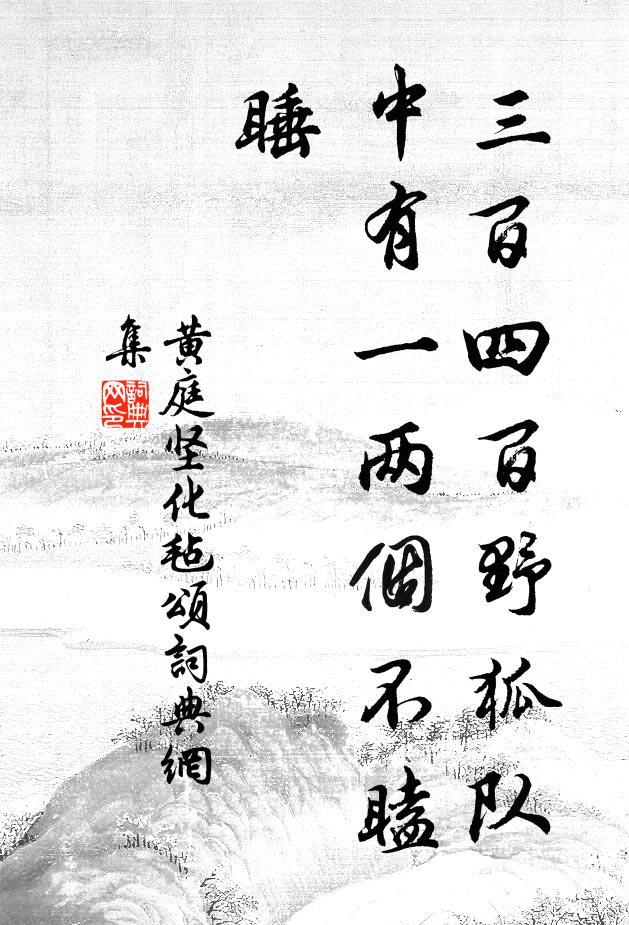 三百四百野狐队
中有一两個不瞌
睡
黄庭坚化毡頌詞典網
集
詞典网印